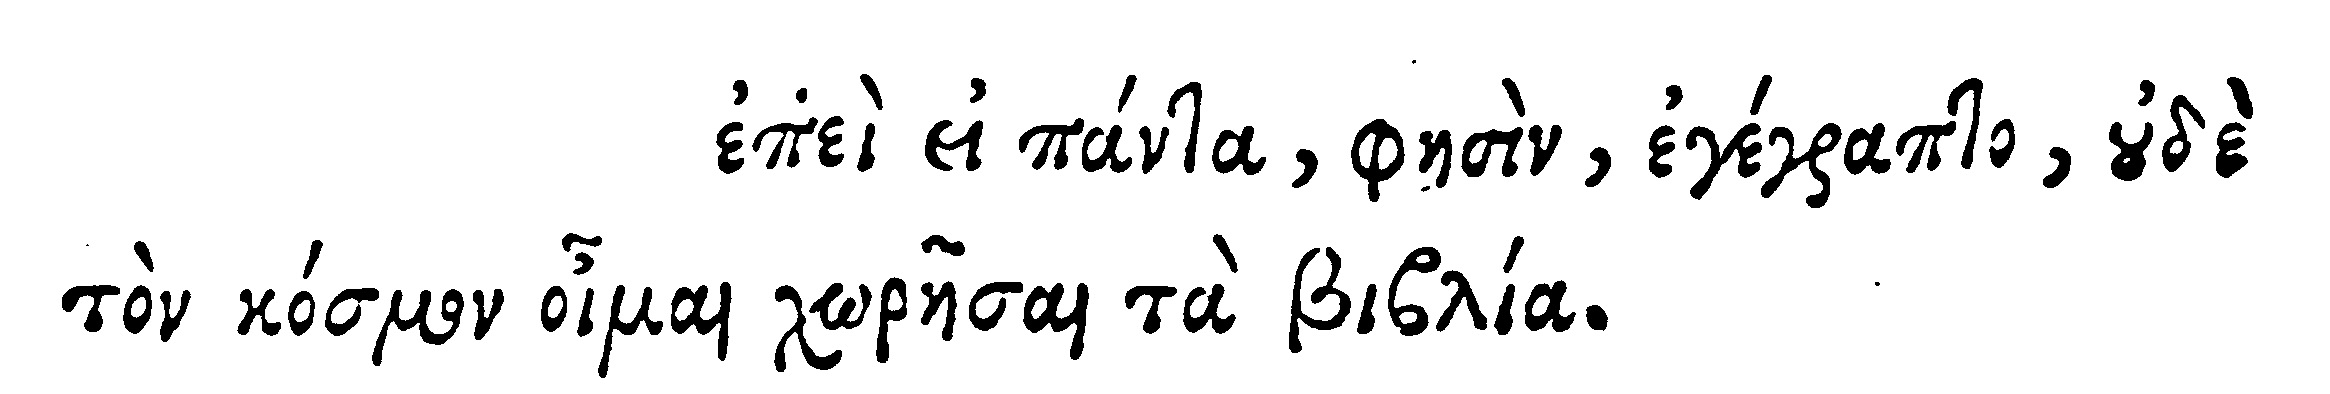 ἐπεὶ εἰ πάντα, φησὶν, ἐγέγραπτο, οὐδὲ
τὸν κόσμον οἶμαι χωρῆσαι τὰ βιβλία.